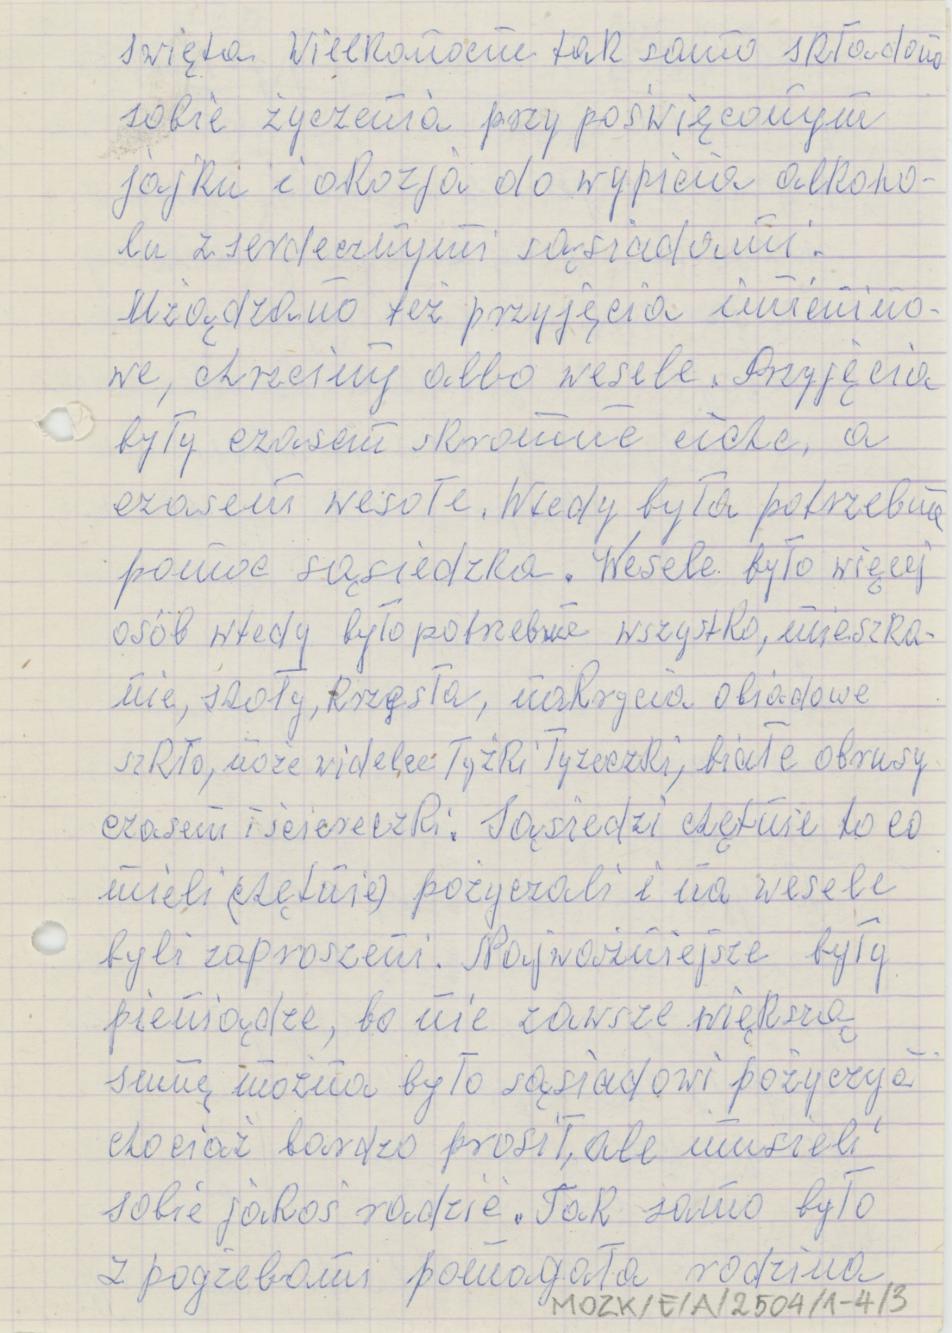 święta Wielkanocne tak samo składano
sobie życzenia przy poświęconym
jajku i okazja do wypicia alkoho-
lu z serdecznymi sąsiadami.
Użądzano też przyjęcia imienino-
we, chrzciny albo wesele. Przyjęcia
były czasem skromne ciche, a
czasem wesołe. Wtedy była potrzebna
pomoc sąsiedzka. Wesele było więcej
osób wtedy było potrzebne wszystko, mieszka-
nie, stoły, krzęsła, nakrycia obiadowe
szkło, noże widelce łyżki łyżeczki, białe obrusy
czasem i ściereczki. Sąsiedzi chętnie to co
mieli (chętnie) pożyczali i na wesele
byli zaproszeni. Najważniejsze były
pieniądze, bo nie zawsze większą
sumę można było sąsiadowi pożyczyć
chociaż bardzo prosił, ale musieli
sobie jakoś radzić. Tak samo było
z pogżebami pomagała rodzina
MOZK/E/A/2504/1-4/3